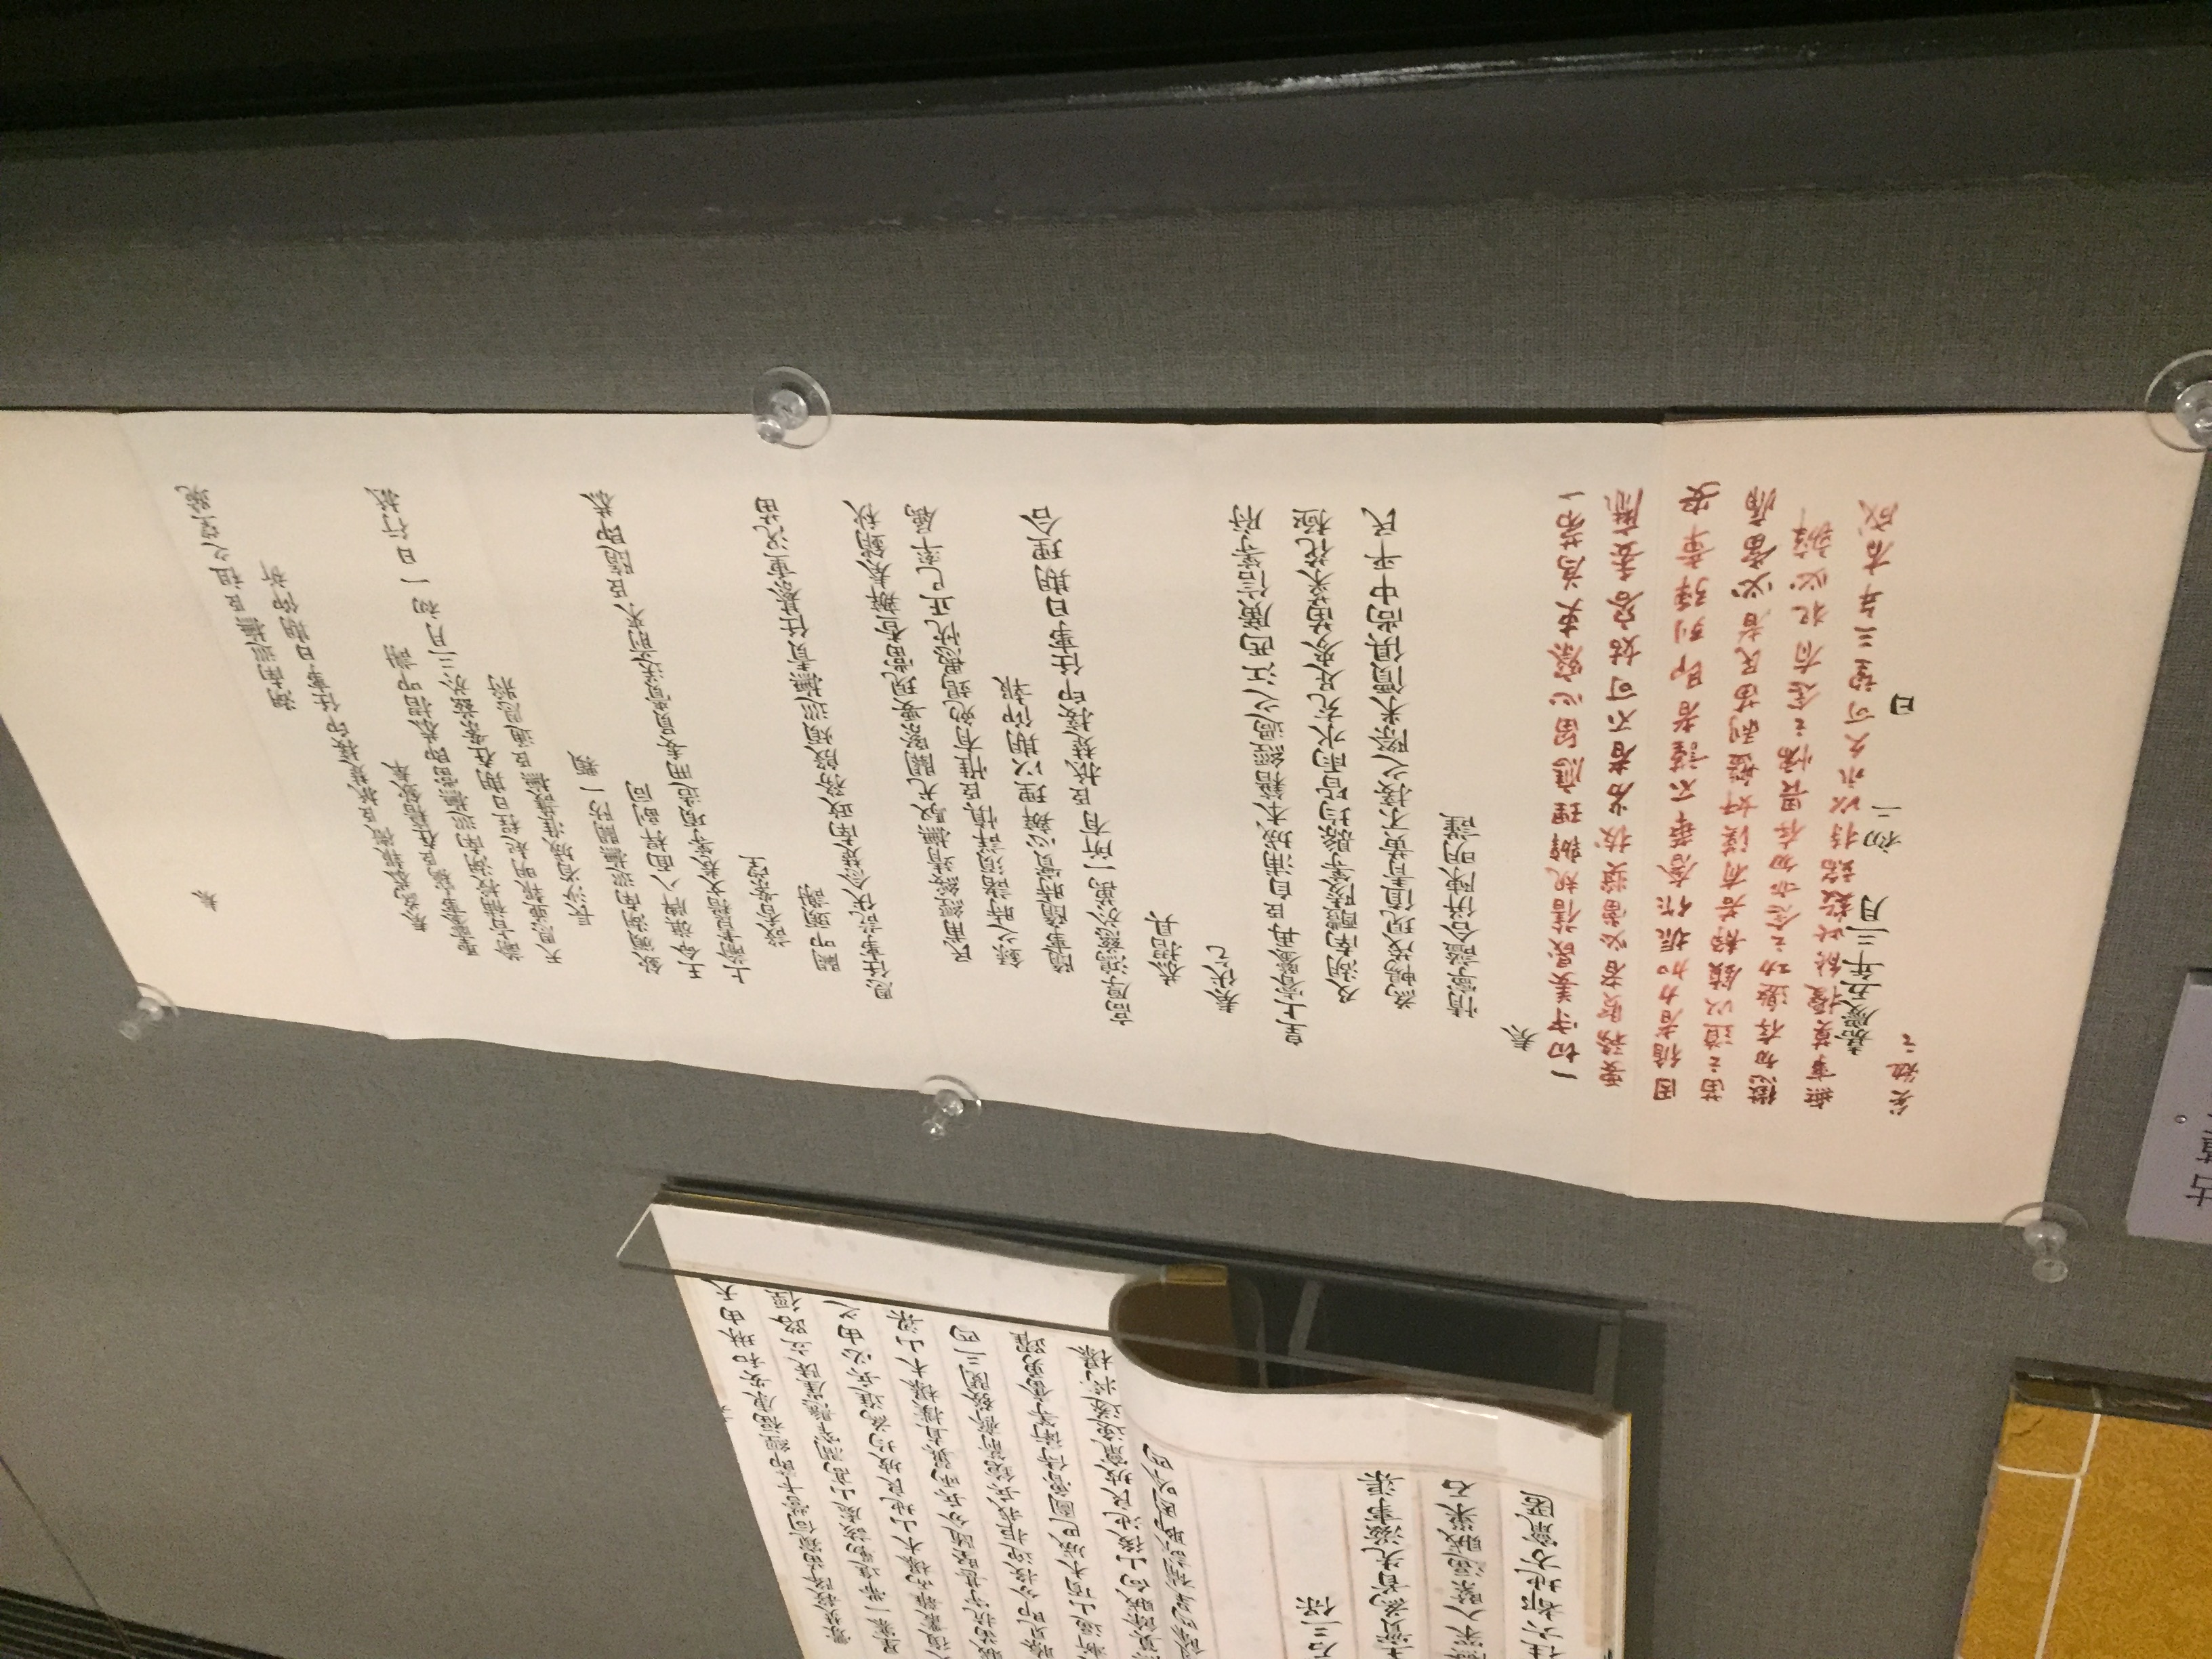 䝉焚投降苗寬伺營卡節經福康安和琳由天
星寨一帶進動該處山高澗窄懸崖陡立路徑
叢雜而欙木山地良坡均為進兵必由之
賊苗抗守甚堅随分兵兩翼直撲欙木山梁
瞭見即分投迎拒我兵鎗箭齊發閱三四
漸逼山頂木城巴圖魯侍衛等奮勇躍
餘賊向山後池良坡竄逸遂將欙
石三保
實為首先滋事渠
深入緊逼賊巢石
往六都地方竄匿
奏
湖南巡撫臣祖之望跪
奏為恭報微臣抵楚接印任事日期仰祈
聖鑒事竊臣在籍欽奉
諭旨補授湖南巡撫當即恭摺叩謝
天恩並報明起程日期在案茲於三月初一日行抵
長沙省城准護撫臣通恩將
欽頒湖南巡撫關防一顆
王命旗牌八面桿副同
上諭書籍文卷等項造冊委員賫送前來臣隨即恭
設香案望
闕叩頭謝
恩任事訖伏念楚南政務殷煩巡撫責任綦重況苗
民甫經綏靖撫馭尤關緊要現當查辦奏銷秋
錄之時諸須詳慎臣惟有勉竭愚忱正己率属
隨事隨時實心辦理以期仰報
高厚鴻慈於萬一所有臣抵楚接印任事日期理合
恭摺具
奏伏乞
皇上睿鑒再臣自浦城本籍經過之江西廣信等府
及湖南醴陵等縣均皆雨水充足麥苗菜花極
為暢茂現值青黃不接之際米價俱尚中平民
情寧謐合併陳明謹
奏
一切守姜晟舊規辦理應留心察吏為苐一
要務賢者必當獎拔劣者不可姑容委靡
因循者力加振作奢華不謹者即列彈章安
苗之道以鎮静若有漢奸盤剥苗民者必當痛
懲勿存邀功之念亦勿存畏懦之念有犯必辦
無事莫擾能此数端持以永久可望三年有成
矣勉之
嘉慶五年三月 初二 日